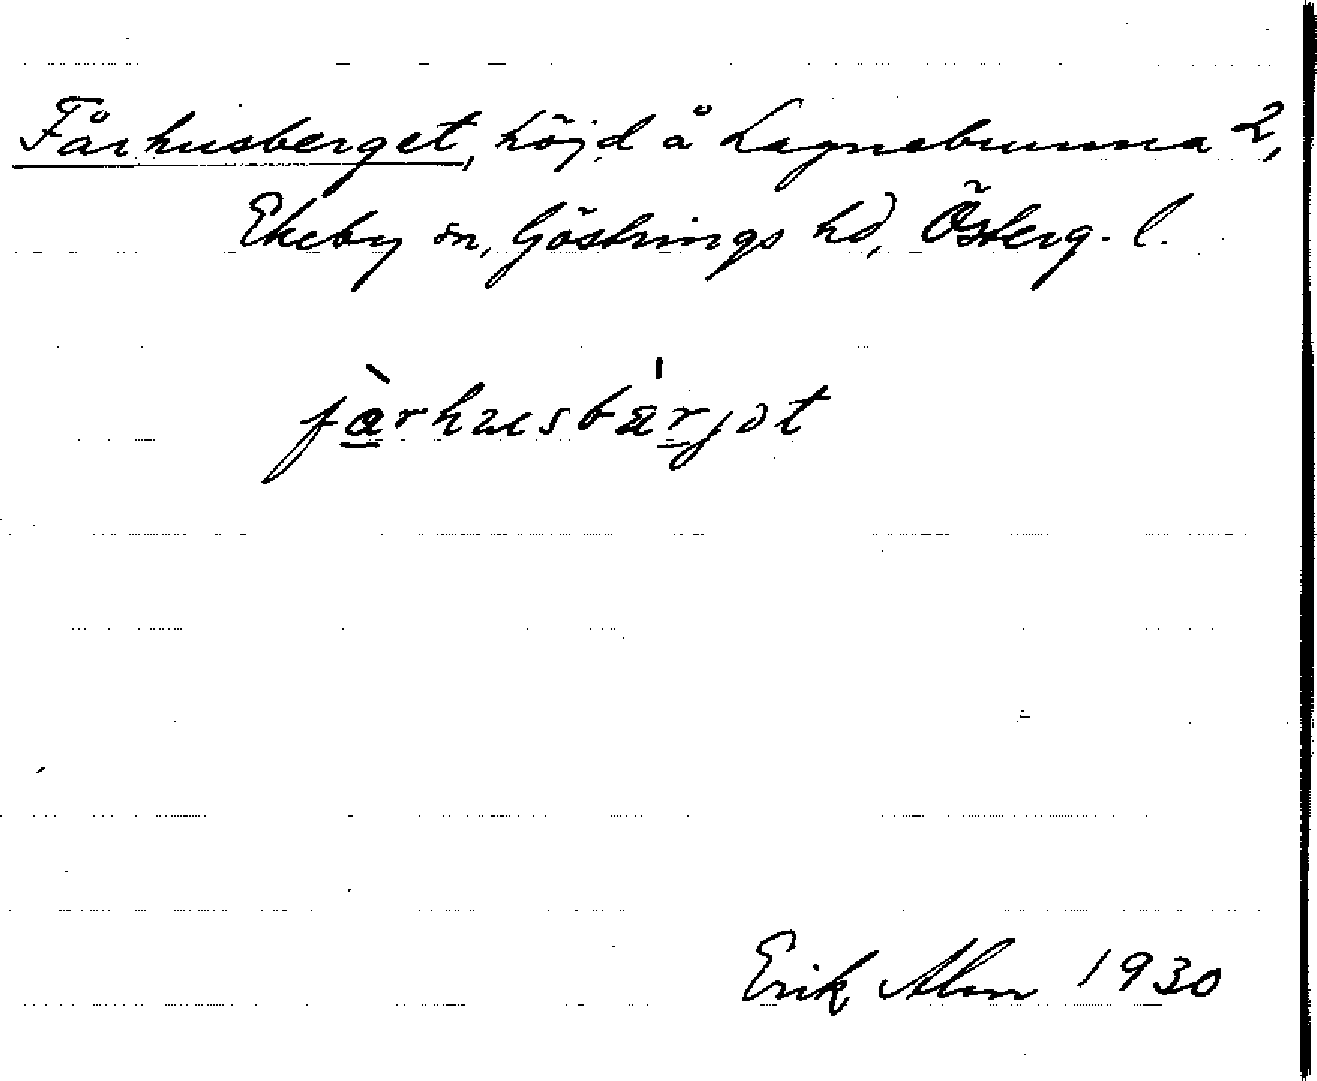 Fårhusberget, höjd å Lagnebrunna 2,
Ekeby sn, Göstrings hd, Österg. l.
fàrhusbärjət
Erik Alm 1930